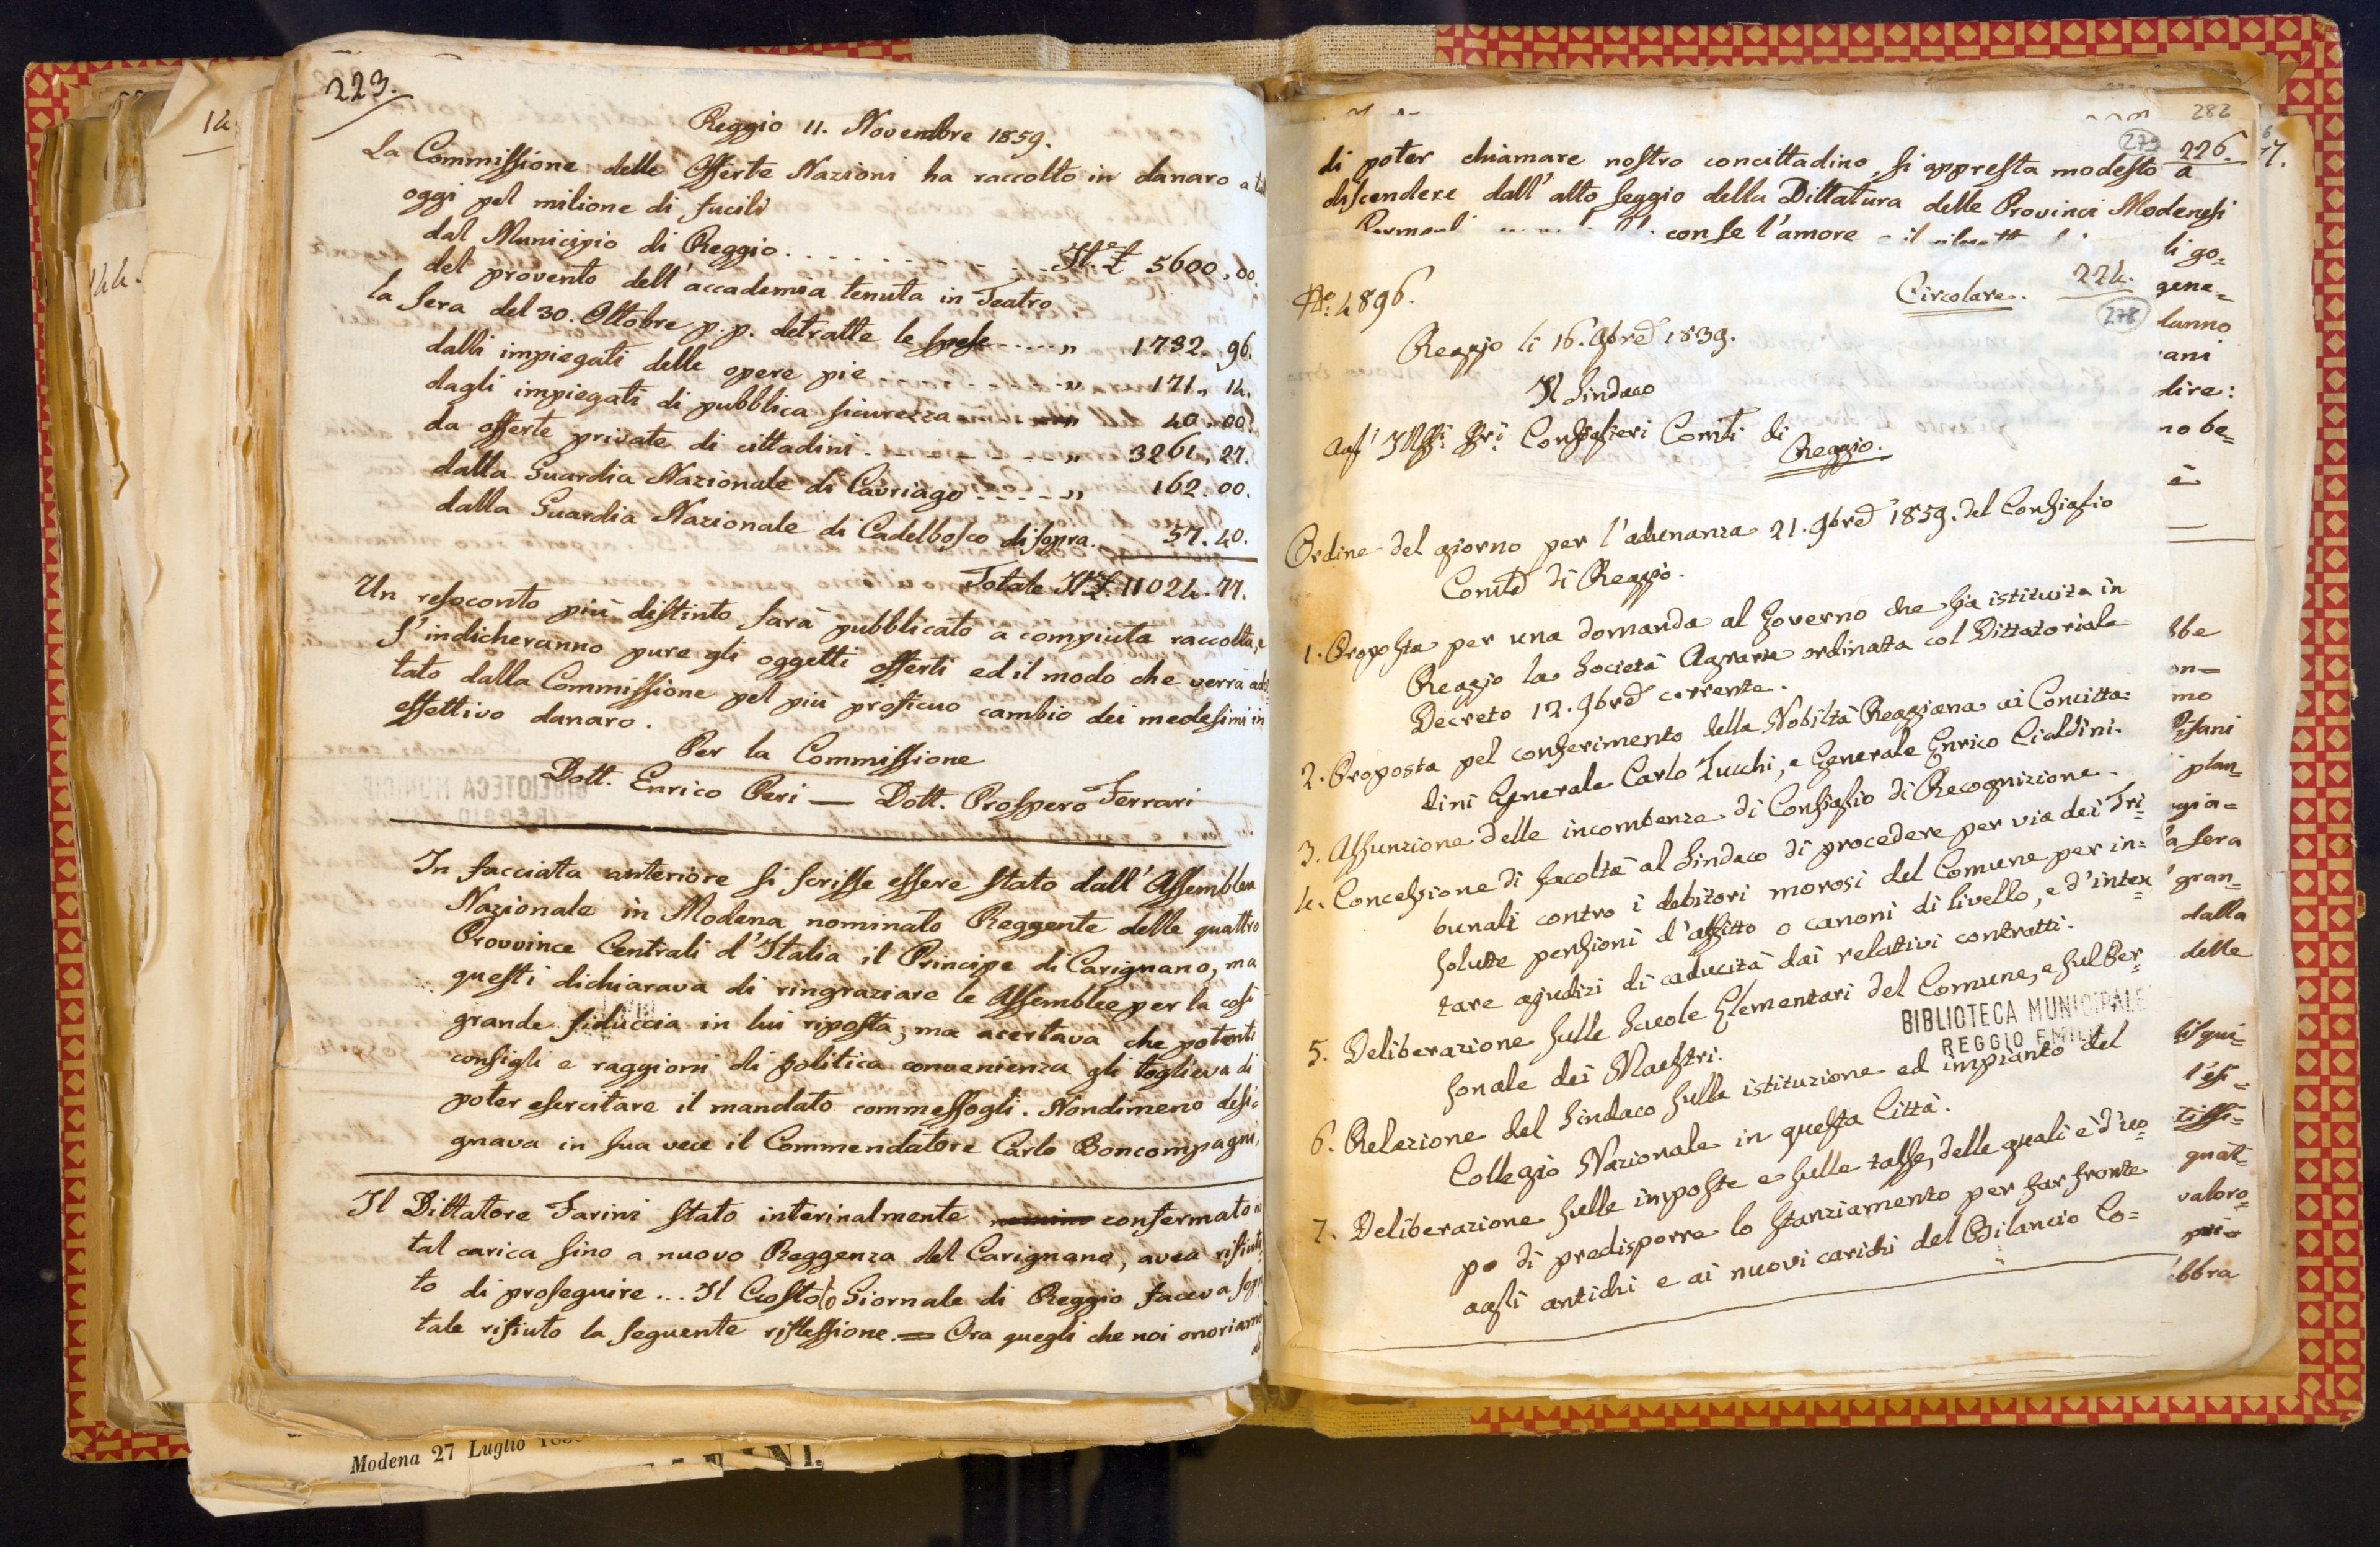 223.
Reggio 11. Novembre 1859.
La Commissione delle Offerte Nazioni ha raccolto in danaro a
oggi pel milione di fucili
dal Municipio di Reggio . . . . . . . . . . . It.e £ 5600,00.
del provento dell'accademia tenuta in Teatro
la sera del 30. Ottobre p.p. detratte le spese . . . . „ 1732. 96.
dalli impiegati delle opere pie . . . . . . . . „ 171, 14.
dagli impiegati di pubblica sicurezza „ 40. 00.
da offerte private di cittadini . . . . . . . „ 3261, 27.
dalla Guardia Nazionale di Cavriago . . . . . „ 162. 00.
dalla Guardia Nazionale di Cadelbosco di sopra . . 57. 40.
Totale It. £. 11024. 77.
Un resoconto più distinto sarà pubblicato a compiuta raccolta, e
s'indicheranno pure gli oggetti offerti ed il modo che verrà
tato dalla Commissione pel più proficuo cambio dei medesimi in
effettivo danaro.
Per la Commissione
Dott. Enrico Peri — Dott. Prospero Ferrari
In facciata anteriore si scrisse essere stato dall'Assemblea
Nazionale in Modena nominato Reggente delle quattro
Provvince Centrali d'Italia il Principe di Carignano, ma
questi dichiarava di ringraziare le Assemblee per la così
grande fiduccia in lui riposta, ma acertava che potenti
consigli e raggioni di politica convenienza gli toglieva di
poter esercitare il mandato commessogli. Nondimeno desi=
gnava in sua vece il Commendatore Carlo Boncompagni,
Il Dittatore Farini stato interinalmente confermato in
tal carica sino a nuovo Reggenza del Carignano, avea rifiuta
to di proseguire ... Il Giornale di Reggio faceva
tale rifiuto la seguente riflessione. = Ora quegli che noi onoriamo
di
Modena 27 Luglio
282
279
226.
di poter chiamare nostro concittadino, si appresta modesto a
discendere dall'alto seggio della Dittatura delle Provinci Modenesi
con se l'amore
No. 4896.
Circolare. 224.
278
Reggio li 16. 9bre 1859.
Il Sindaco
Agl' Illssi Sri Consiglieri Comti di
Reggio.
Ordine del giorno per l'adunanza 21. 9bre 1859. del Consiglio
Comle di Reggio.
1. Proposta per una domanda al Governo che sia istituita in
Reggio la Società Agraria ordinata col Dittatoriale
Decreto 12. 9bre corrente.
2. Proposta pel conferimento della Nobiltà Reggiana ai Concitta=
dini Generale Carlo Zucchi, e Generale Enrico Cialdini.
3. Assunzione delle incombenze di Consiglio di Recognizione.
4. Concessione di facoltà al Sindaco di procedere per via dei Tri=
bunali contro i debitori morosi del Comune per in=
solute pensioni d'affitto o canoni di livello, e d'inten=
tare giudizi di caducità dai relativi contratti.
5. Deliberazione sulle Scuole Elementari del Comune, e sul Per=
sonale dei Maestri.
BIBLIOTECA MUNICIPALE
REGGIO EMILIA
6. Relazione del Sindaco sulla istituzione ed impianto del
Collegio Nazionale in questa Città.
7. Deliberazione sulle imposte e sulle tasse, delle quali è d'uo=
po di predisporre lo stanziamento per far fronte
agli antichi e ai nuovi carichi del Bilancio Co=
li go=
gene=
lanno
ani
dire:
no be=
è
on=
mo
plan=
gia=
a sera
gran=
dalla
delle
l'esi=
tissi=
quat=
valoro=
più
bbra